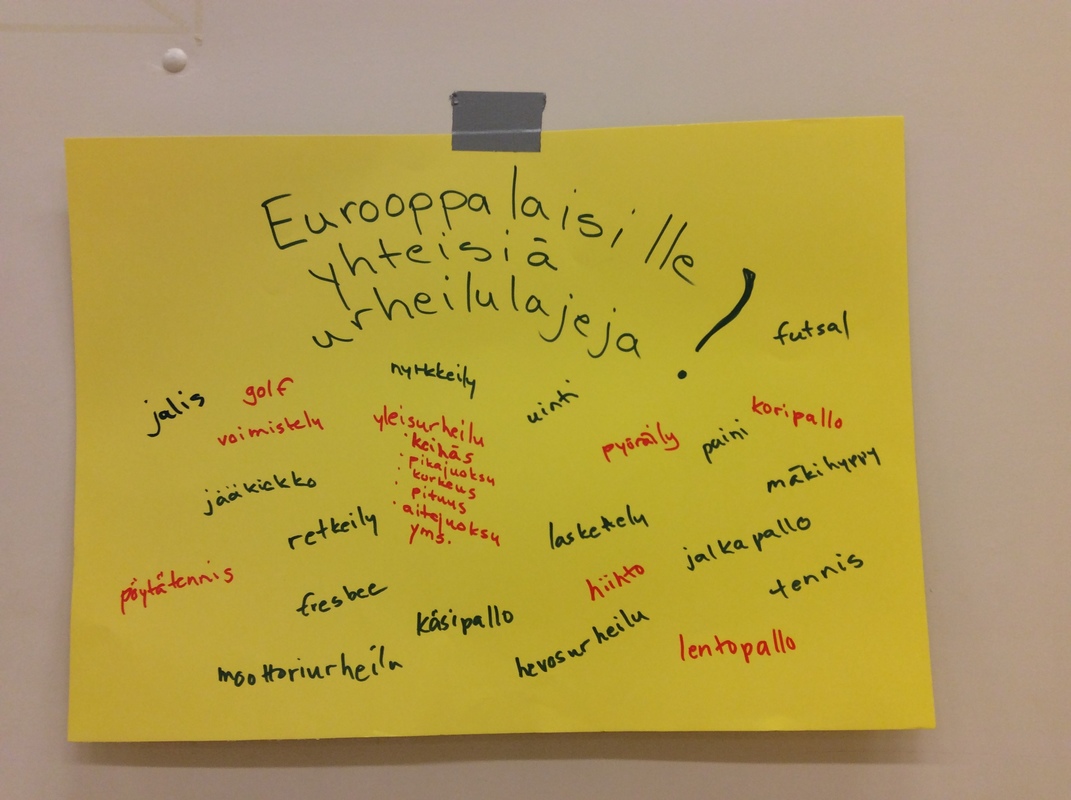 Eurooppalaisille
yhteisiä
urheilulajeja !
futsal
nyrkkeily
jalis
golf
uinti
voimistelu
yleisurheilu
· keihäs
· pikajuoksu
· korkeus
· pituus
· aitajuoksu
yms.
pyöräily
paini
koripallo
mäkihyppy
jääkiekko
retkeily
laskettelu
jalkapallo
pöytätennis
fresbee
hiihto
tennis
käsipallo
moottoriurheilu
hevosurheilu
lentopallo